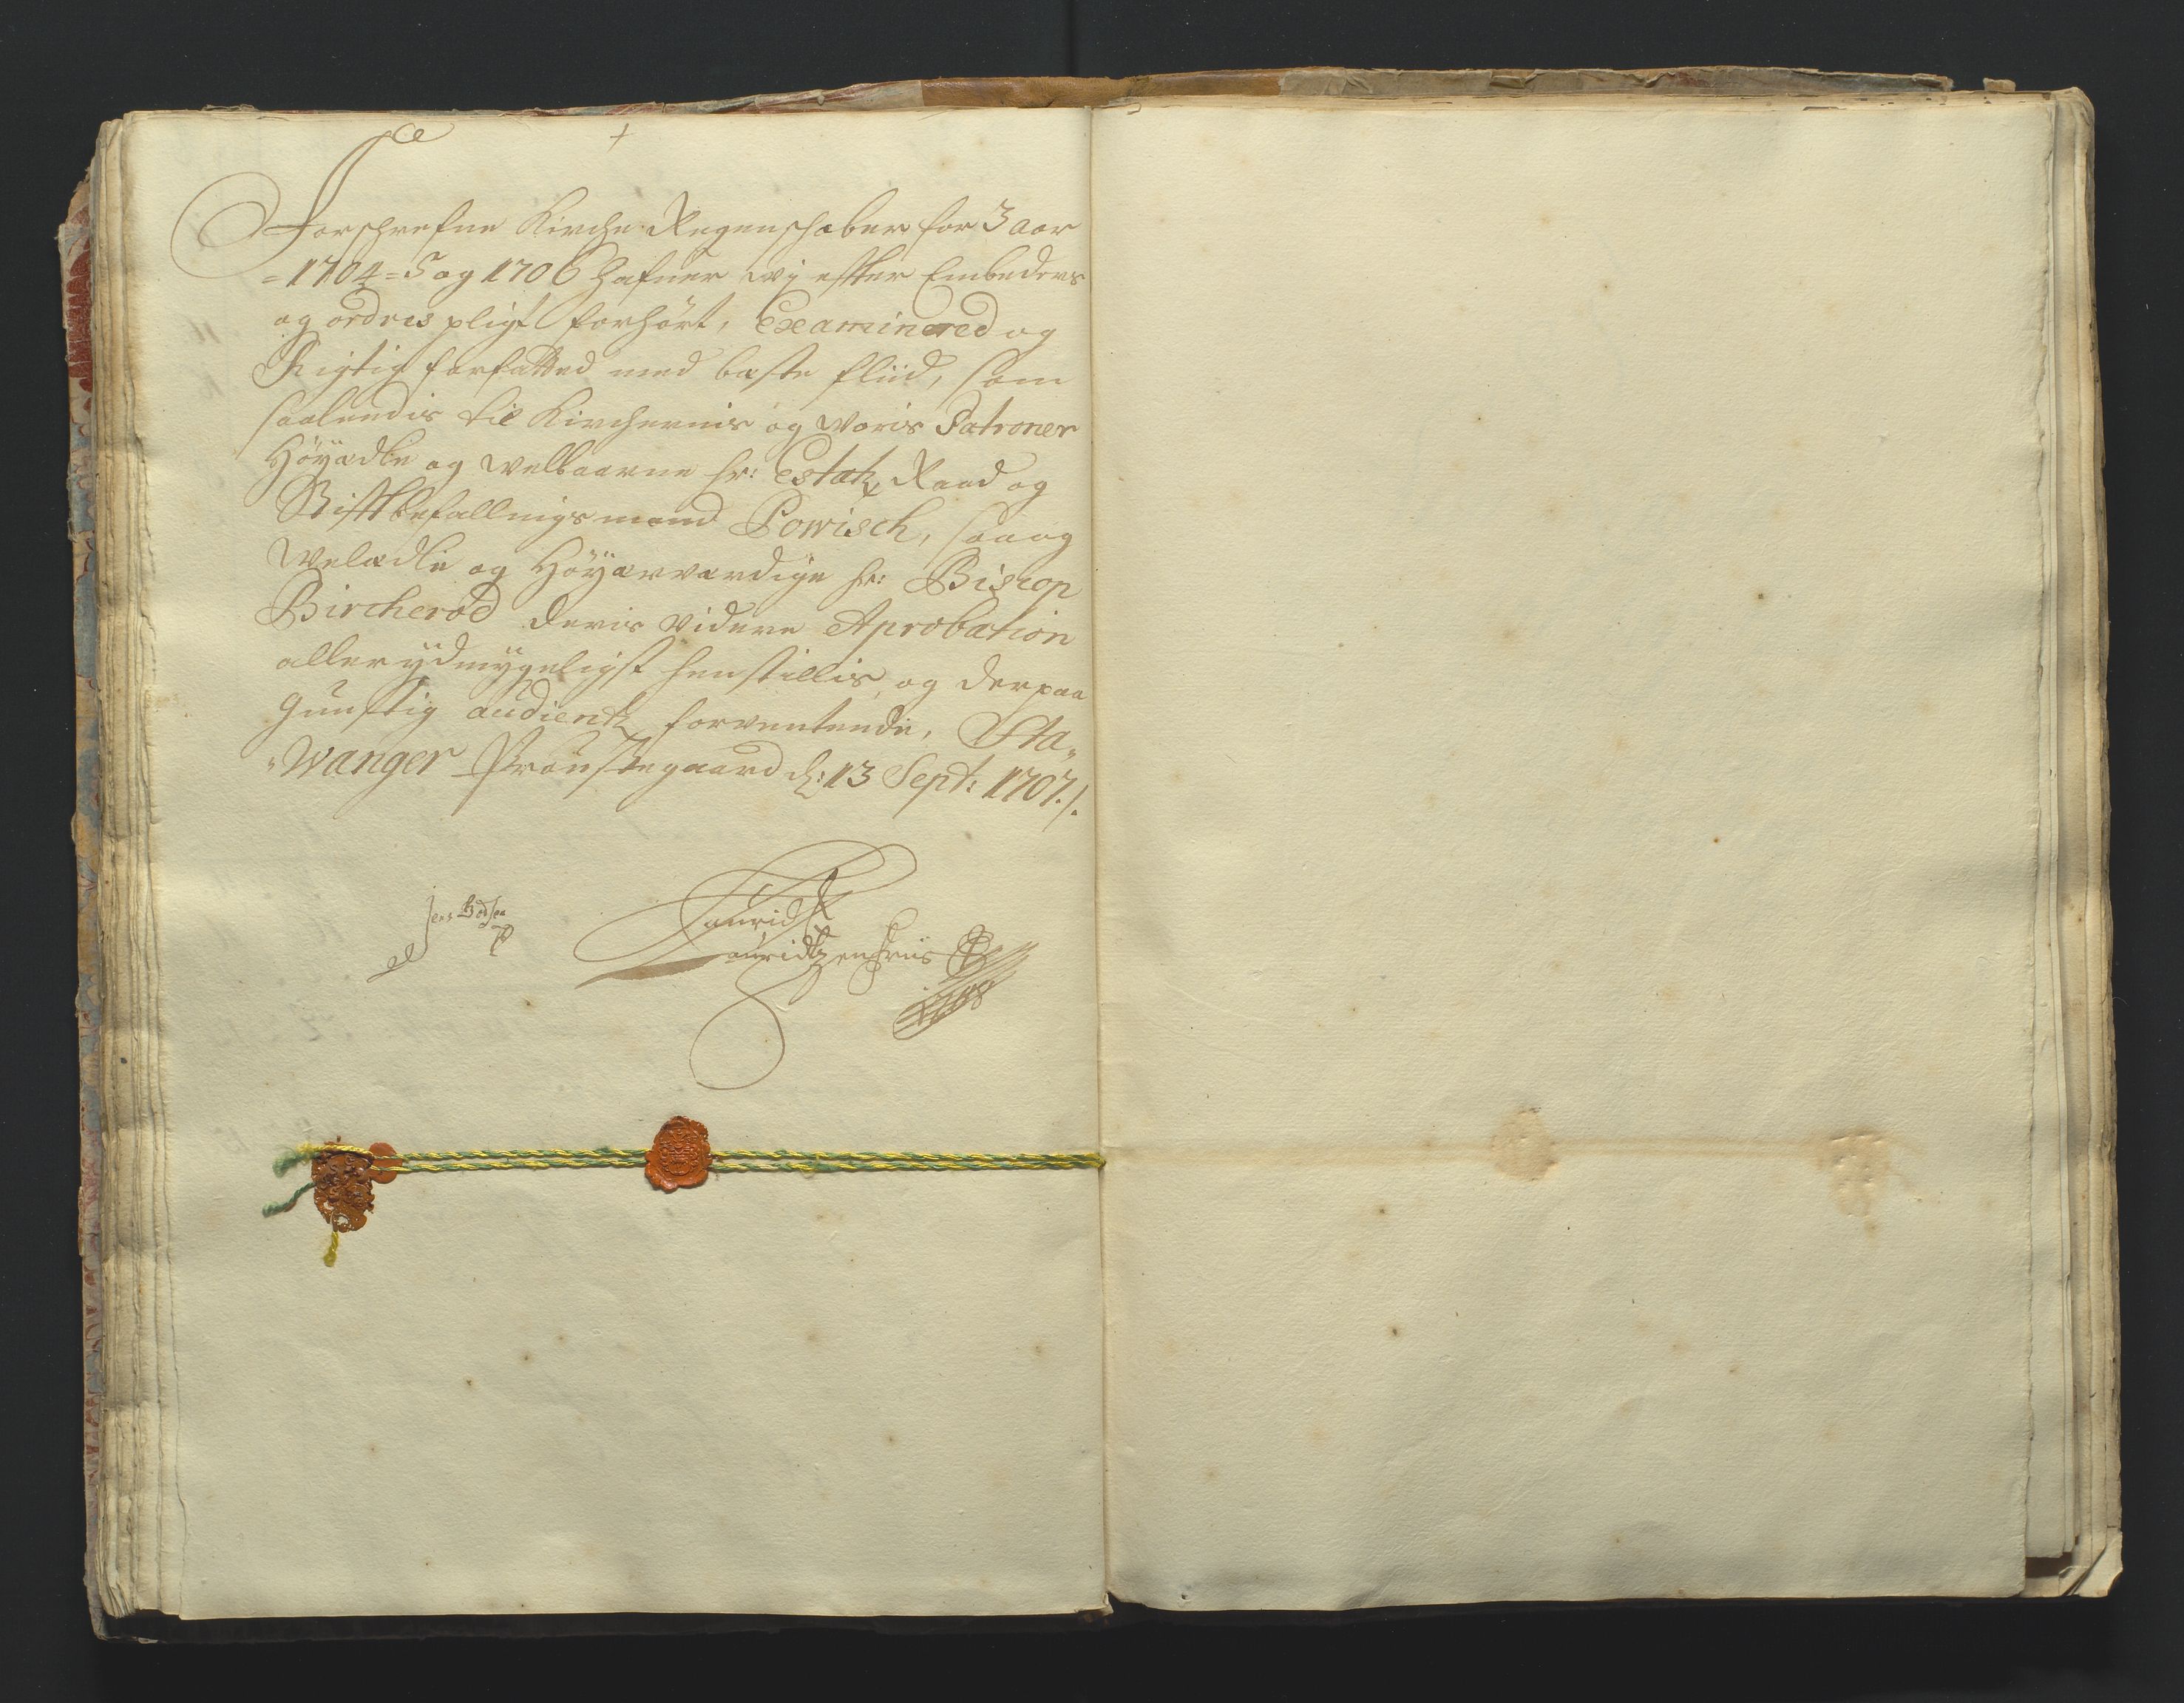 Forschrefne Kirche Regenschaber for 3 aar
=1704=5 og 1706 hafuer wj effter Embeders
og ordres pligt forhört, Examinered og
Rigtig forfatted med bæste fliid, som
saaledis til Kirchernis og Woris Patroner
Höyædle og welbaarne hr: Estatz Raad og
Stifftbefallingsmand Powisch, saa og
Welædle og Höyærværdige hr: Biscop
Bircherod deris videre Aprobation
allerydmygeligst henstillis, og derpaa
gunstig audientz forventende, Sta„
„Wanger Proustegaard d: 13 Sept: 1707./.
Jens
Lauridtz
Lauridtzen Friis